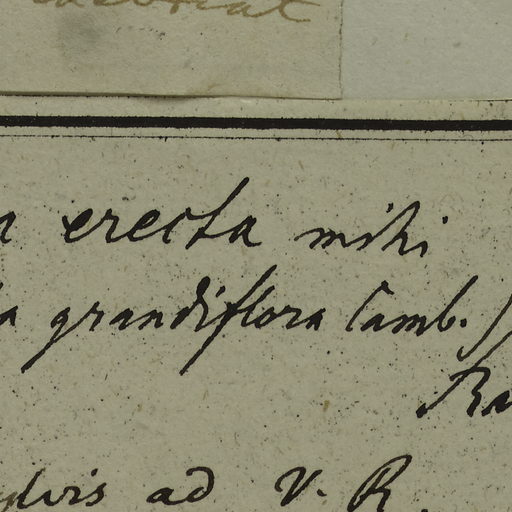 a erecta mihi
a grandiflora Camb.)
Ra
ylvis ad V. R.